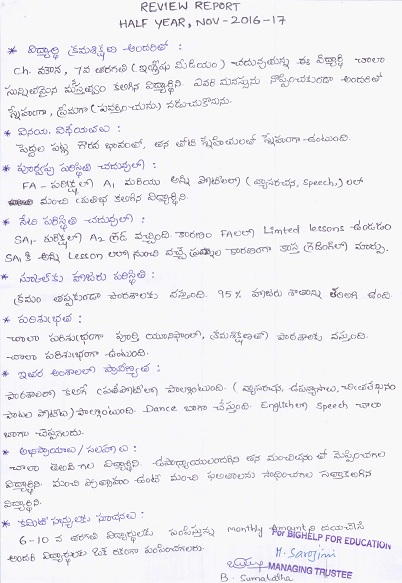 REVIEW REPORT
HALF YEAR, NOV-2016-17
* విద్యార్థి క్రమశిక్షణ అందరితో :
Ch. మౌనిక, 7వ తరగతి (ఇంగ్లీషు మీడియం) చదువుచున్న ఈ విద్యార్థి చాలా
సున్నితమైన మనస్తత్వం కలిగిన విద్యార్థిని. ఎవరి మనస్సును నొప్పించకుండా అందరితో
స్నేహంగా, ప్రేమగా నడుచుకొనును.
* వినయ, విధేయతలు :
పెద్దల పట్ల గౌరవ భావంతో, తన తోటి స్నేహితులతో స్నేహంగా ఉంటుంది.
* పూర్వపు పరిస్థితి చదువులో :
FA - పరీక్షలో A1 మరియు అన్ని పోటీలలో (వ్యాసరచన, speech,) లలో
మంచి ప్రతిభ కలిగిన విద్యార్థిని.
* నేటి పరిస్థితి చదువులో :
SA1- పరీక్షలో A2 గ్రేడ్ వచ్చింది. కారణం FA లలో Limted lessons ఉండడం
SA కి అన్ని Lesson లలో నుంచి వచ్చే కారణంగా గ్రేడింగ్‌లో మార్పు.
* స్కూల్‌కు హాజరు పరిస్థితి :
క్రమం తప్పకుండా పాఠశాలకు వస్తుంది. 95% హాజరు శాతాన్ని కలిగి ఉంది.
* పరిశుభ్రత :
చాలా పరిశుభ్రంగా పూర్తి యూనిఫాంలో, క్రమశిక్షణతో పాఠశాలకు వస్తుంది.
చాలా పరిశుభ్రంగా ఉంటుంది.
* ఇతర అంశాలలో ప్రావీణ్యత :
పాఠశాలలో జరిగే ప్రతిపోటీలో పాల్గొంటుంది. (వ్యాసరచన, ఉపన్యాసాలు, చిత్రలేఖనం
పాటల పోటీలు) పాల్గొంటుంది. Dance బాగా చేస్తుంది. English లో speech చాలా
బాగా చెప్పగలదు.
* అభిప్రాయాలు / సలహాలు :
చాలా తెలివిగల విద్యార్థిని. ఉపాధ్యాయులందరిని తన మంచితనంతో మెప్పించగల
విద్యార్థిని. మంచి ప్రోత్సాహం ఉంటే మంచి ఫలితాలను సాధించగల సత్తాకలిగిన
విద్యార్థిని.
* కమిటీ సభ్యులకు సూచనలు :
6-10 వ తరగతి విద్యార్థులకు పంపిస్తున్న monthly amount ని దయచేసి
అందరి విద్యార్థులకు ఒకే రకంగా పంపించగలరు.
For BIGHELP FOR EDUCATION
M. Sarojini
MANAGING TRUSTEE
B. Sumaladha